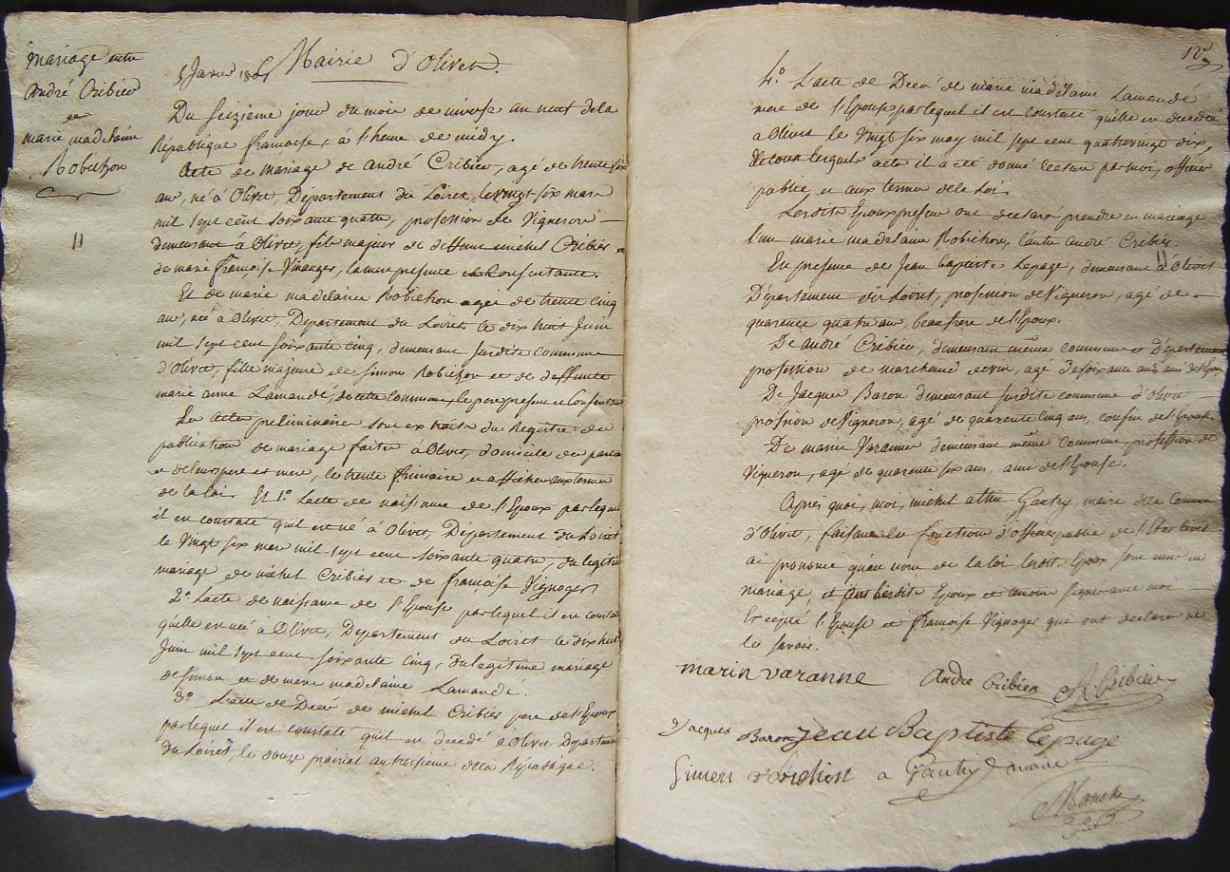 mariage entre
André Cribier
et
marie madelaine
Robichon
11
Mairie d'Olivet.
Du Seizieme jour du mois de nivose an neuf de la
République française, à l'heure de midy.
Acte de mariage de andré Cribier, agé de trente six
ans, né à Olivet, Département du Loiret, le vingt six mars
mil sept cent soixante quatre, profession de Vigneron
demeurant à Olivet, fils majeur de deffunt michel Cribier et
de marie françoise Vinauger, la mere presente et Consentante.
Et de marie madelaine Robichon agée de trente cinq
ans, née à Olivet, Département du Loiret le dix huit Juin
mil sept cent soixante cinq, demeurant susdite commune
d'olivet, fille majeure de Simon Robichon et de deffunte
marie anne Lamandé, de cette Commune, le pere present et Consentant
Les Actes préliminaires sont extraits du Registre des
publications de mariage faites à Olivet, domicile des parties
et de leurs pere et mere, le trente frimaire et affichées aux termes
de la loi. Et 1º L'acte de naissance de l'Epoux par lequel
il est constaté quil est né à Olivet, Département du Loiret
le Vingt six mars mil sept cent soixante quatre, du legitime
mariage de michel Cribier et de françoise Vignoger
2º L'acte de naissance de l'Epouse par lequel il est constaté
qu'elle est née à Olivet, Département du Loiret le dix huit
Juin mil sept cent soixante cinq, du legitime mariage
de Simon et de marie madelaine Lamandé.
3º L'acte de Décès de michel Cribier pere de l'Epoux
par lequel il est constaté quil est décédé à Olivet Département
du Loiret, le douze prairial an treizieme de la République.
4º L'acte de Décès de marie madelaine Lamandé
mere de l'Epouse par lequel il est constaté qu'elle est décédée
à Olivet le vingt six may mil sept cent quatrevingt dix,
De tous lesquels actes il a été donné lecture par moi, officier
public, et aux termes de la Loi.
Lesdits Epoux presens ont declaré prendre en mariage
l'un marie madelaine Robichon, l'autre andré Cribier.
En presence de Jean baptiste Lepage, demeurant à Olivet
Département du Loiret, profession de Vigneron, agé de
quarente quatre ans, beau frere de l'Epoux.
De andré Cribier, demeurant même commune et Département
profession de marchand de vin, agé de soixante
De Jacques Baron demeurant susdite commune d'olivet
profession de Vigneron, agé de quarente cinq ans, cousin de l'Epouse
De marin Varanne demeurant même Commune, profession de
Vigneron, agé de quarente six ans, ami de l'Epouse.
Après quoi, moi, michel Gautry maire de la Commune
d'Olivet, faisant les fonctions d'officier public de l'Etat Civil
ai prononcé qu'au nom de la loi lesdits Epoux sont unis en
mariage, et ont lesdits Epoux et temoins signé avec moi
Excepté l'Epouse et françoise Vignoger qui ont déclaré ne
le savoir.
marin varanne André Cribier Cribier
Jacques Baron jean Baptiste lepage
Simon Robichon Gautry maire